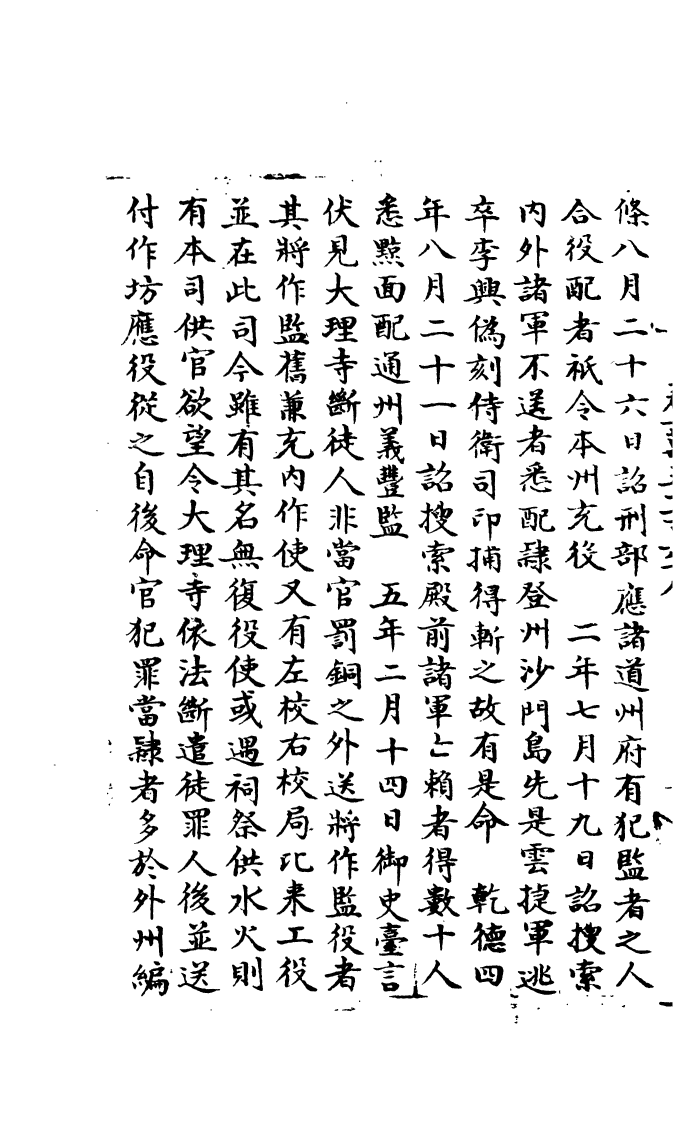 條八月二十六日詔刑部應諸道州府有犯監者之人
合役配者祇令本州充役　二年七月十九日詔搜索
内外諸軍不逞者悉配隷登州沙門島先是雲捷軍逃
卒李興偽刻侍衛司印捕得斬之故有是命　乾德四
年八月二十一日詔搜索殿前諸軍亡賴者得數十人
悉黥面配通州義豐監　五年二月十四日御史臺言
伏見大理寺斷徒人非當官罰銅之外送將作監役者
其將作監舊兼充内作使又有左校右校局比来工役
並在此司今雖有其名無復役使或遇祠祭供水火則
有本司供官欲望令大理寺依法斷遣徒罪人後並送
付作坊應役從之自後命官犯罪當隷者多於外州編